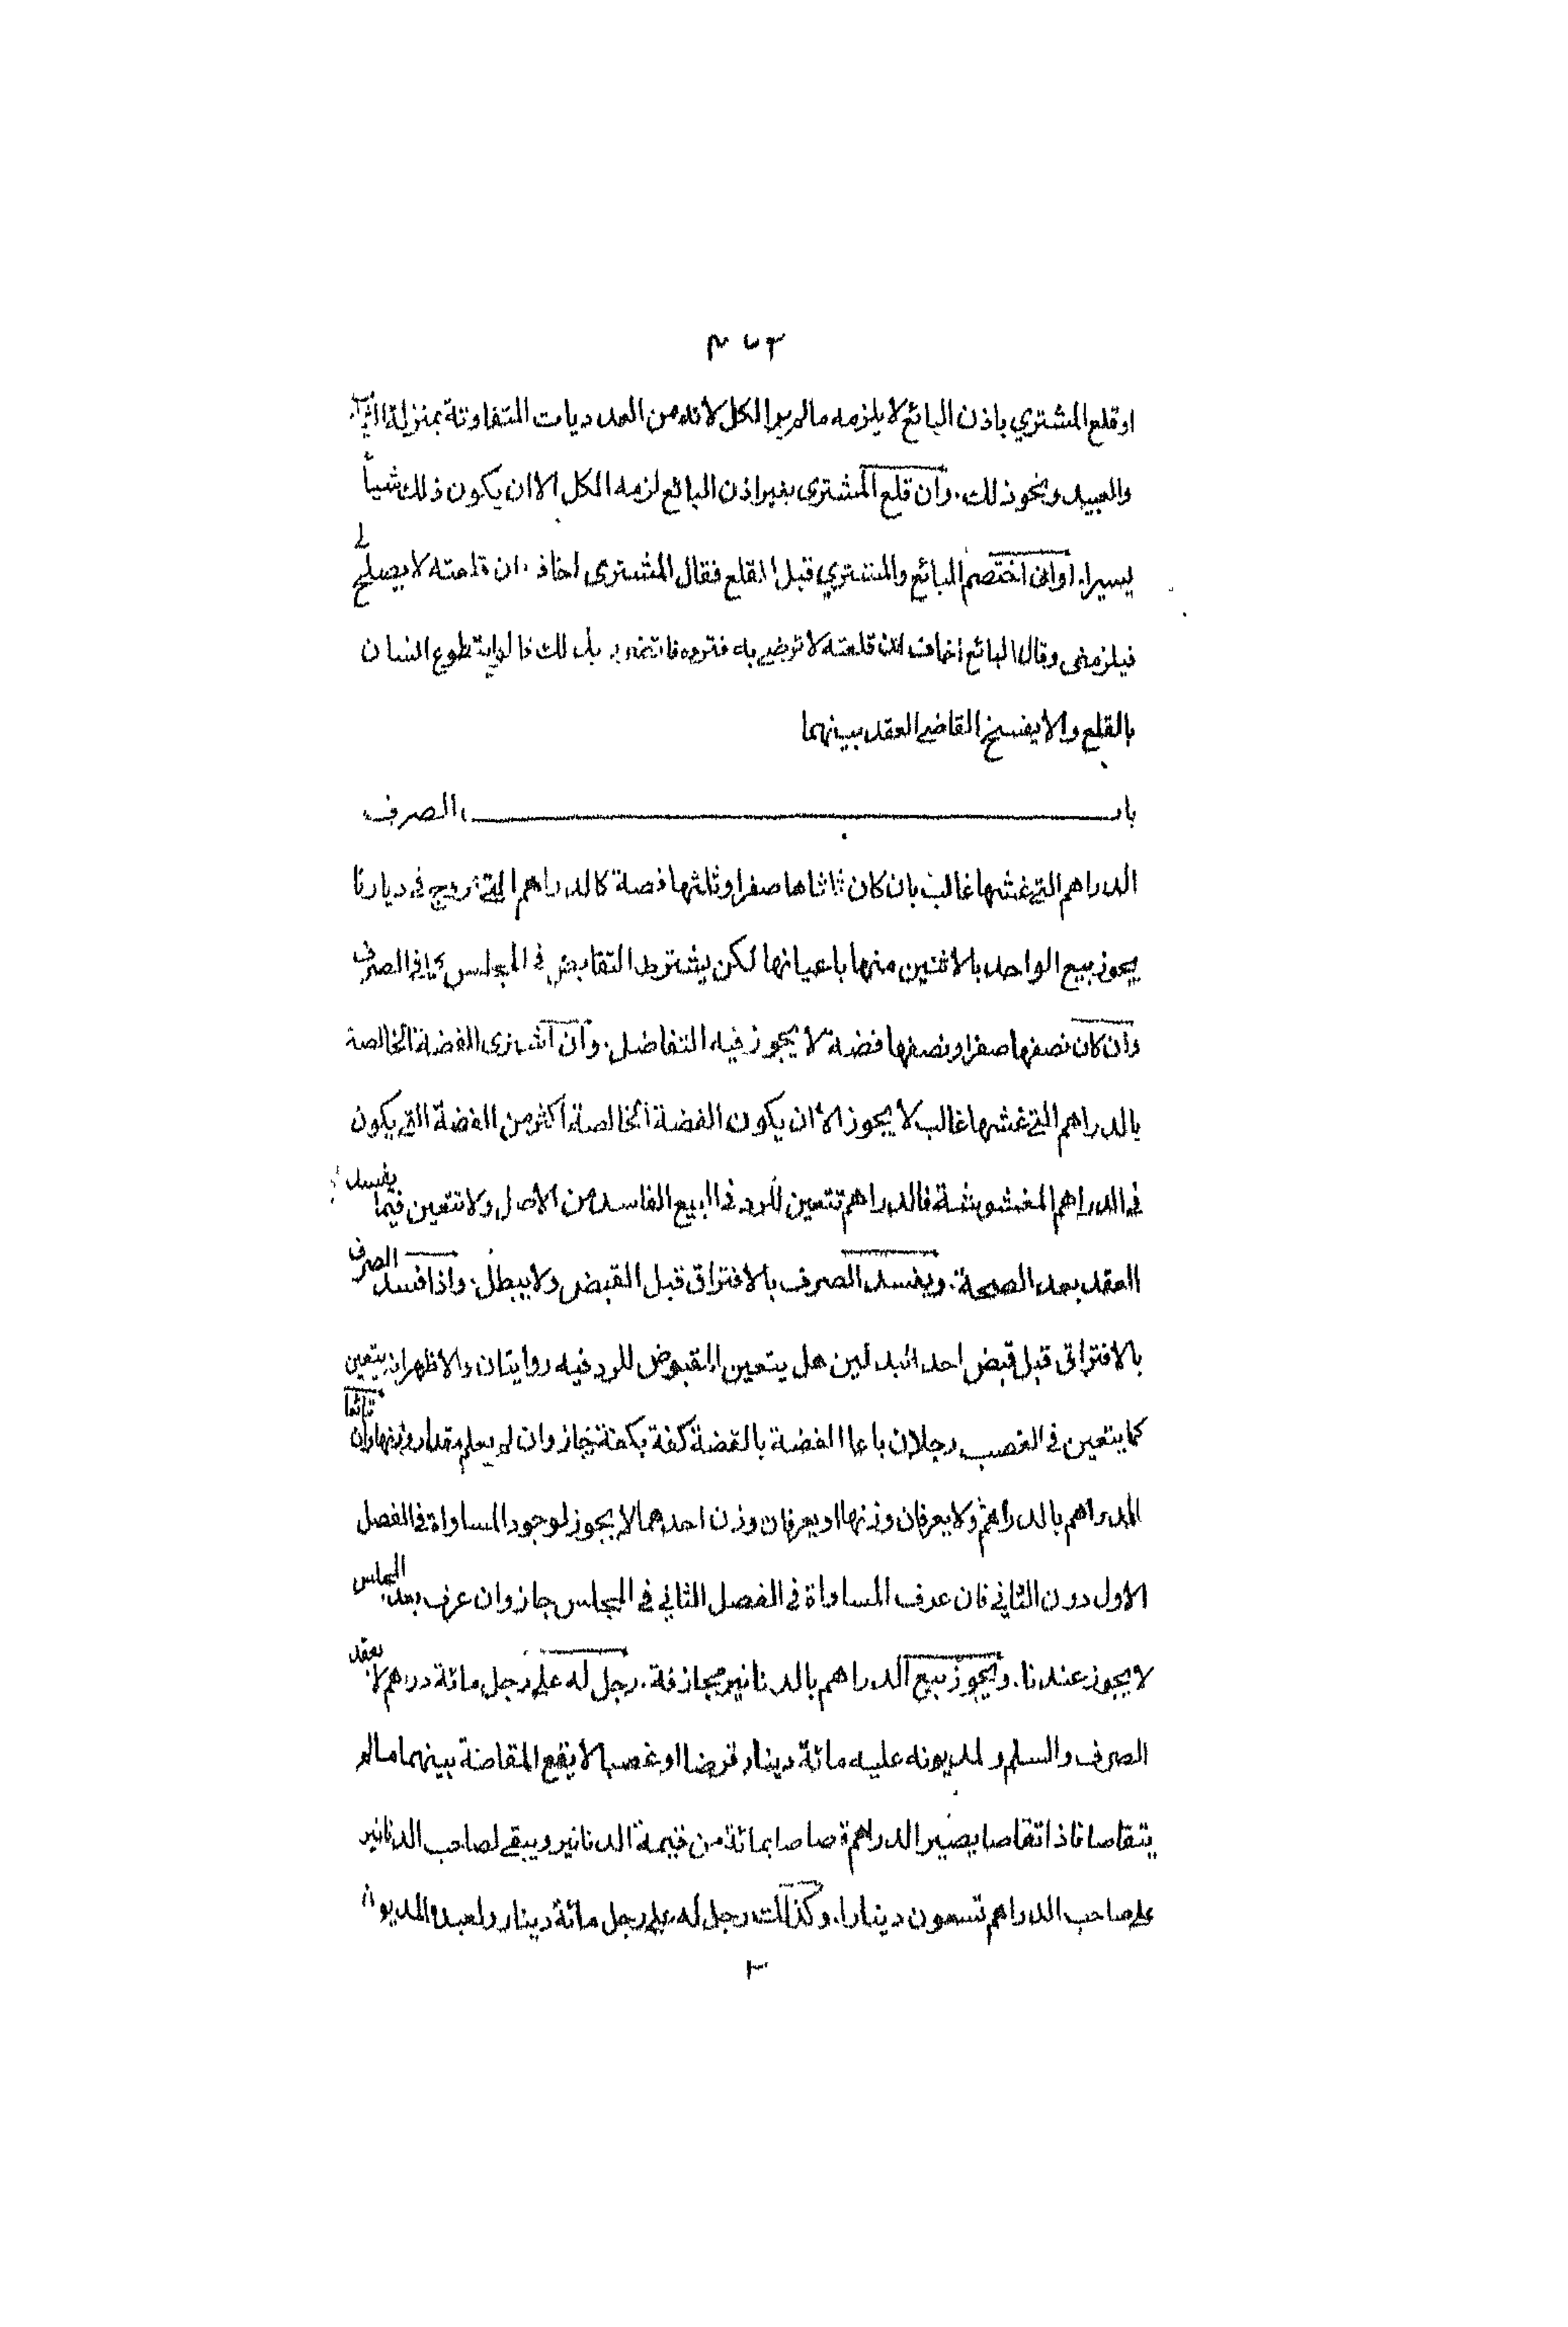 او قلع المشتري باذن البائع لا يلزمه مالم ير الكل لانه من العدديات المتفاوتة بمنزلة الثياب
والعبيد ونحو ذلك. وان قلع المشترى بغير اذن البائع لزمه الكل الا ان يكون ذلك شيأ
يسيرا. وان اختصم البائع والمشتري قبل القلع فقال المشترى اخاف ان قلعته لا يصلح لى
فيلزمنى وقال البائع اخاف ان قلعته لا ترضى به فترده فاتضرر بذلك يتطوع انسان
بالقلع والا يفسخ القاضى العقد بينهما
باب الصرف
الدراهم التى غشها غالب بان كان ثلثاها صفرا وثلثها فضة كالدراهم التى تروج فى ديارنا
يجوز بيع الواحد بالاثنين منها باعيانها لكن يشترط التقابض فى المجلس كما فى الصرف
وان كان نصفها صفرا ونصفها فضة لا يجوز فيه التفاضل. وان اشترى الفضة الخالصة
بالدراهم التى غشها غالب لا يجوز الا ان يكون الفضة الخالصة اكثر من الفضة التى يكون
فى الدراهم المغشوشة فالدراهم تتعين للرد فى البيع الفاسد من الاصل ولا تتعين فيما يفسد
العقد بعد الصحة. ويفسد الصرف بالافتراق قبل القبض ولا يبطل. واذا فسد الصرف
بالافتراق قبل قبض احد البدلين هل يتعين المقبوض للرد فيه روايتان والاظهر انه يتعين
كما يتعين فى الغصب رجلان باعا الفضة بالفضة كفة بكفة جاز وان لم يعلم مقدار وزنها وان تبائعا
الدراهم بالدراهم ولا يعرفان وزنها او يعرفان وزن احدهما لا يجوز لوجود المساواة فى الفصل
الاول دون الثانى فان عرف المساواة فى الفصل الثانى فى المجلس جاز وان عرف بعد المجلس
لا يجوز عندنا. ويجوز بيع الدراهم بالدنانير مجازفة. رجل له على رجل مائة درهم لا بعقد
الصرف والسلم ولمديونه عليه مائة دينار قرضا او غصبا لا يقع المقاصة بينهما مالم
يتقاصا فاذا تقاصا يصير الدراهم قصاصا بمائة من قيمة الدنانير ويبقى لصاحب الدنانير
على صاحب الدراهم تسعون دينارا. وكذلك رجل له على رجل مائة دينار ولعبد المديون